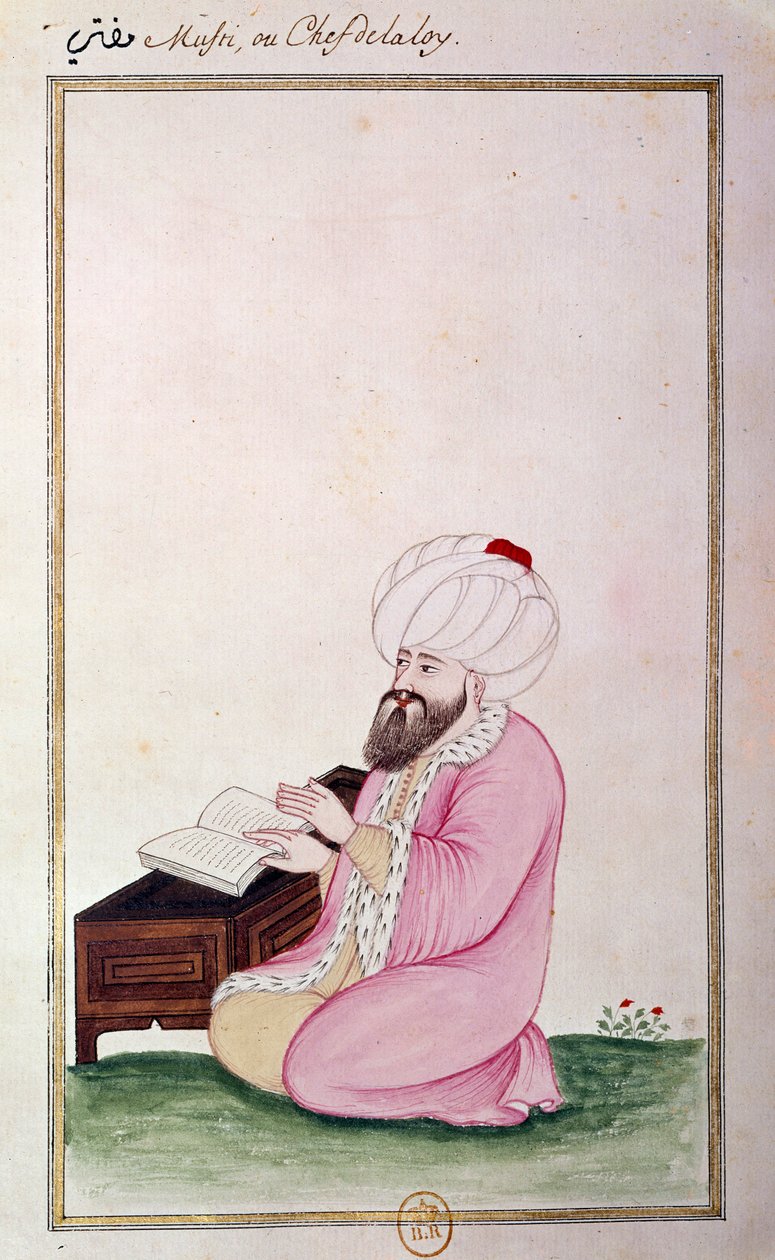 مفتي Mufti, ou Chef de la loy.
B.R